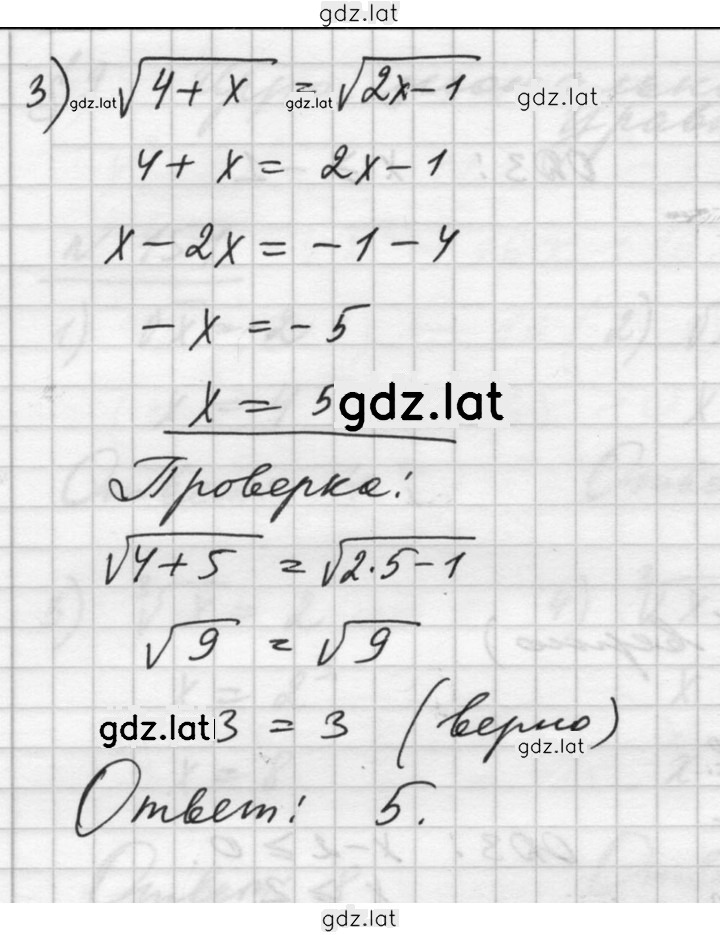 gdz.lat
3) gdz.lat √(4 + x) gdz.lat = √(2x − 1) gdz.lat
4 + x = 2x − 1
x − 2x = −1 − 4
− x = − 5
x = 5 gdz.lat
Проверка:
√(4 + 5) = √(2·5 − 1)
√9 = √9
gdz.lat 3 = 3 (верно)
gdz.lat
Ответ: 5.
gdz.lat